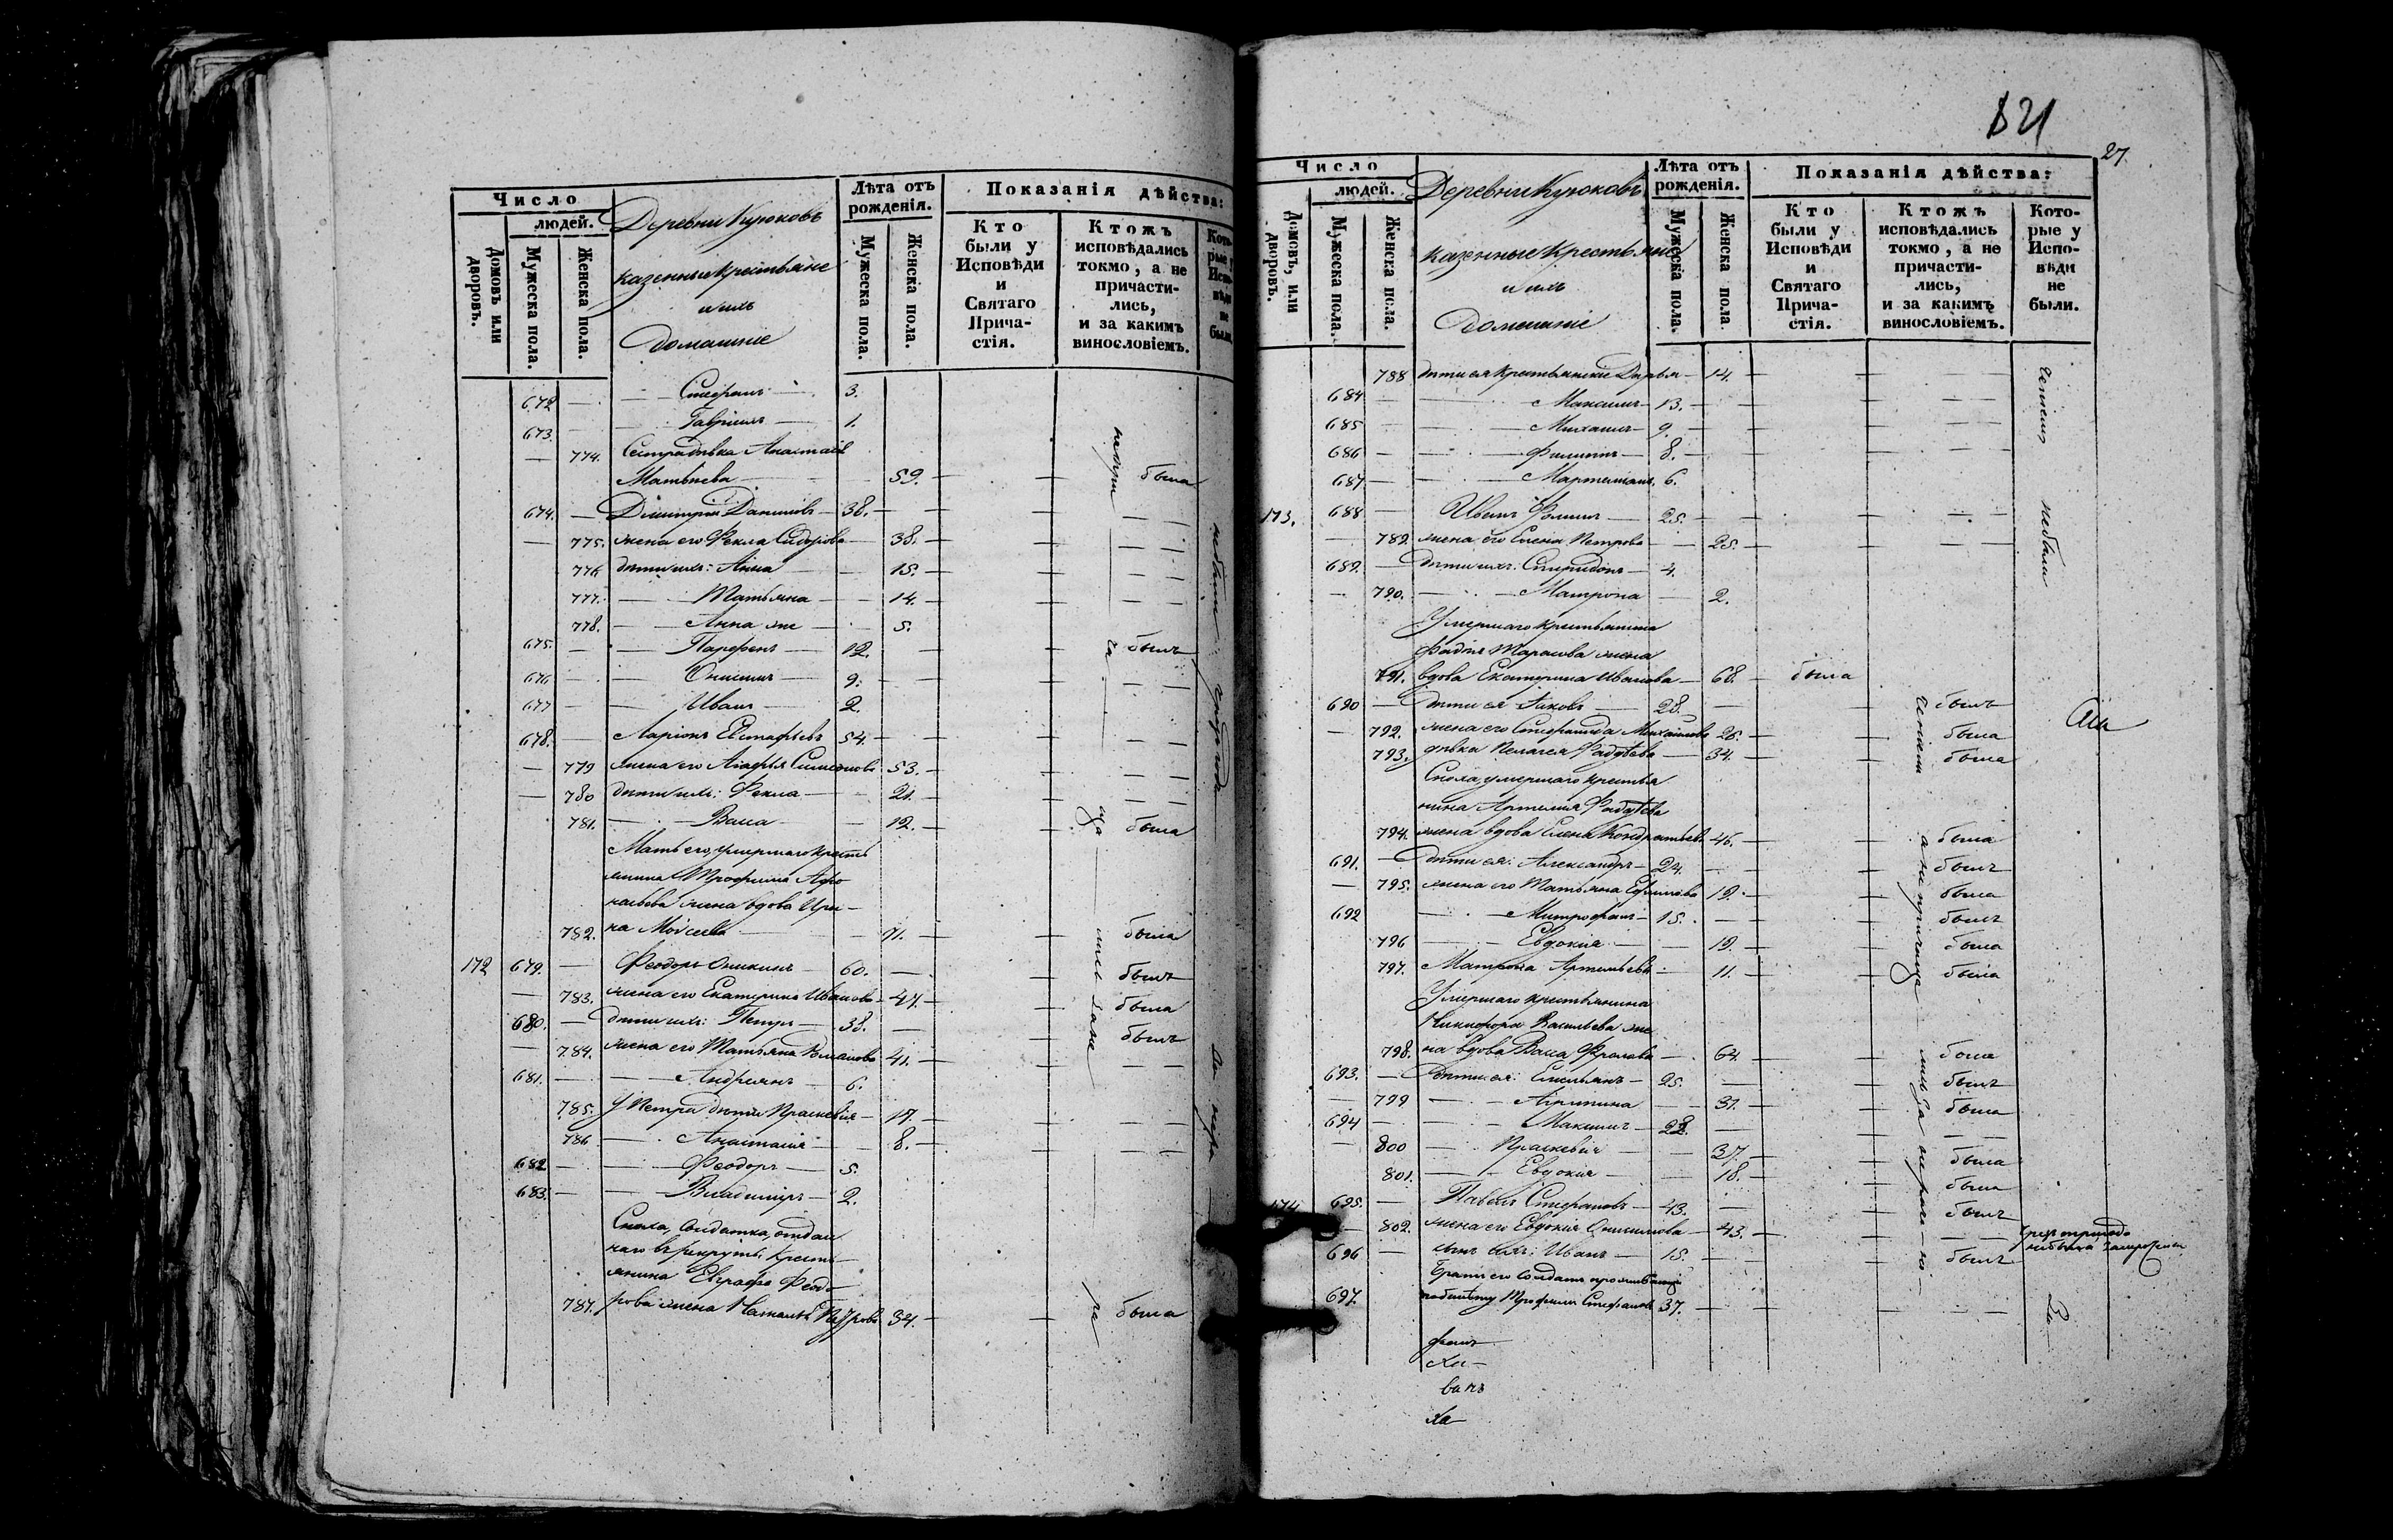 Число
людей.
Домовъ или дворовъ.
Мужеска пола.
Женска пола.
Деревни Куюковъ
казенные крестьяне
и ихъ
домашніе
Лѣта отъ рожденія.
Мужеска пола.
Женска пола.
Показанія дѣйства:
Кто были у Исповѣди и Святаго Причастія.
Ктожъ исповѣдались токмо, а не причастились, и за какимъ винословіемъ.
Которые у Исповѣди не были.
672 — Стефанъ — 3.
673. — Гавріилъ — 1.
— 774. Сестра дѣвка Анастасія
Матвѣева — 59. — — была
674. — Димитрій Даниловъ — 38. —
— 775. жена его Фекла Сидорова — 38. —
776 дѣти ихъ: Анна — 15. —
777. — Татьяна — 14. —
778. — Анна же — 5.
675. — Парфенъ — 12. — былъ
676 — Онисимъ — 9. —
677 — Иванъ — 2.
678. — Ларіонъ Евстафьевъ 54. —
— 779 жена его Агафья Симеонова 53. —
— 780 дѣти ихъ: Фекла — 21. —
781. — Васса — 12. — была
Мать его, умершаго кресть
янина Трофима Афо
насьева жена вдова Ири—
782. на Моисеева — 71. — была
172 679. — Феодоръ Оникинъ — 60. — былъ
— 783. жена его Екатерина Иванова — 47. — была
680. — дѣти ихъ: Петръ — 38. — былъ
— 784. жена его Татьяна Романова 41. —
681. — Андреянъ — 6.
785. У Петра дѣти Праскевія — 17. —
786 — Анастасія — 8. —
682 — Феодоръ — 5.
683. — Владиміръ — 2.
Сноха, солдатка, отдан
наго въ рекруты, кресть
янина Евграфа Феодо
787. рова жена Наталья Петрова 34. — была
821
27
Число
людей.
Домовъ, или дворовъ.
Мужеска пола.
Женска пола.
Деревни Куюковъ
казенные крестьяне
и ихъ
Домашніе
Лѣта отъ рожденія.
Мужеска пола.
Женска пола
Показанія дѣйства:
Кто были у Исповѣди и Святаго Причастія.
Ктожъ исповѣдались токмо, а не причастились, и за какимъ винословіемъ.
Которые у Исповѣди не были.
788 дѣти ея крестьянскіе Дарья — 14. —
684 — Максимъ — 13. —
685 — Михаилъ — 9. —
686 — Филиппъ — 8. —
687 — Мартиміанъ. 6.
173. 688 — Иванъ Фоминъ — 25. —
— 789. жена его Елена Петрова — 25. —
689. — дѣти ихъ: Спиридонъ — 4.
— 790. — Матрона — 2.
Умершаго крестьянина
Фадѣя Тарасова жена
791. вдова Екатерина Иванова — 68. — была
690 — дѣти ея Яковъ — 28. — былъ
— 792. жена его Стефанида Михайлова 26. — была
793. дѣвка Пелагея Фадѣева — 34. — была
Сноха, умершаго кресть
янина Артемія Фадѣева
794. жена вдова Елена Кондратьев. 46. — была
691. — дѣти ея: Александръ — 24. — былъ
— 795. жена его Татьяна Ефимова 19. — была
692 — Митрофанъ — 15. — былъ
796 — Евдокія — 19. — была
797. Матрона Артемьева — 11. — была
Умершаго крестьянина
Никифора Васильева же
798. на вдова Васса Фролова — 64 — была
693. — дѣти ея: Емельянъ — 25. — былъ
799 — Агрипина — 31. — была
694 — Максимъ — 28. —
800 — Праскевія — 37. — была
801. — Евдокія — 18. — была
174 695. — Павелъ Стефановъ — 43. — былъ
— 802. жена его Евдокія Онисимова — 43. —
696 — сынъ ихъ: Иванъ — 15. — былъ
Братъ его солдатъ проживающ
697. по билету Трофимъ Стефановъ 37. —